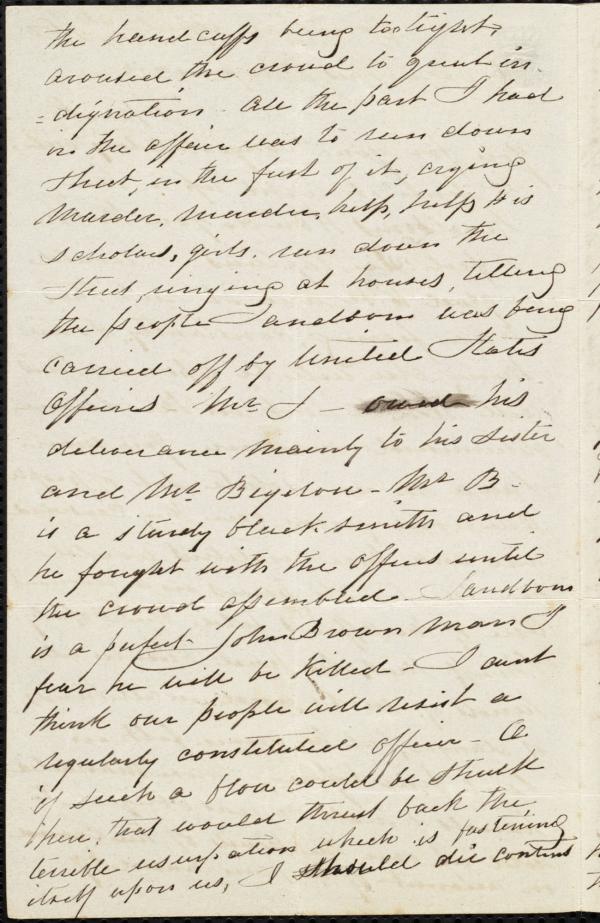 the hand cuffs being too tight,
aroused the crowd to great in
=dignation - all the part I had
in the affair was to run down
street, in the first of it, crying
Murder, murder, help, help His
scholars, girls, run down the
street, ringing at houses, telling
the people Sandborn was being
carried off by United States
Officers Mr S - owed his
deliverance mainly to his sister
and Mr Bigelow - Mr B -
is a sturdy black smith and
he fought with the officers until
the crowd assembled - Sandborn
is a perfect John Brown man I
fear he will be killed - I cant
think our people will resist a
regularly constituted officer - O
if such a blow could be struck
here, that would thrust back the
terrible usurpation which is fastening
itself upon us, I should die content